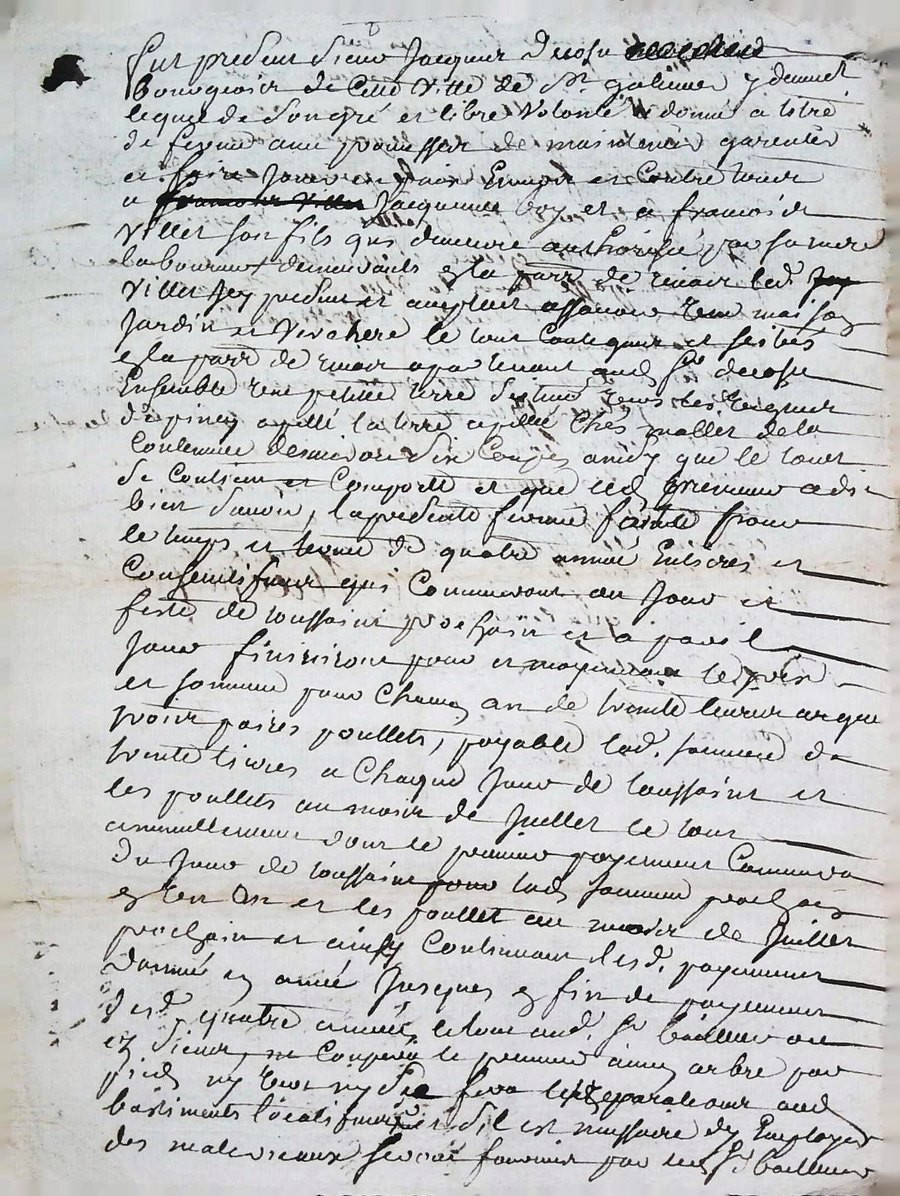 fut present sieur Jacques decosu
bourgeois de cette ville de St galmier y demeurt
lequel de son gré et libre volonté a donné a titre
de ferme avec promesse de maintenir garentir
et faire jouir en paix Envers et contre tous
a francois villet Jacquemie boy et a francois
villet son fils qui demeure authorisé par sa mere
laboureur demeurants en la parr de led
villet icy present et acceptant assavoir une maison
Jardin et verchere le tout contigus et scitués
en la parr de apartenant aud sr decosu
Ensemble une petite terre située
d'epiney apellé la terre apellée Ches mallet de la
contenue demivron six Coupes ainsy que le tout
se contient et comporte et que led preneur a dit
bien scavoir, la presente ferme faitte pour
le temps et terme de quatre année Entieres et
consecutifves qui commenceront au Jour et
feste de toussaint prochain et a pareil
Jour finiront pour et moyennant le prix
et somme pour chacun an de trente livres argent
trois paires poullets, payable lad. somme de
trente livres a chaque Jour de toussaint et
les poullets au mois de Juillet le tout
annuellement dont le premier payement commencera
du Jour de toussaint pour lad somme prochain
en un an et les poullet au mois de Juillet
prochain et ainsy continuant lesd. payement
d'année en année Jusques en fin de payement
desd. quatre année le tout aud. sr bailleur ou
es siens, ne coupera le preneur aucun arbre par
pied ny teste ny fera les reparations aud
bastiments locatifves et s'il est nessaire dy Employer
des materieaux seront fournis par led sr bailleur